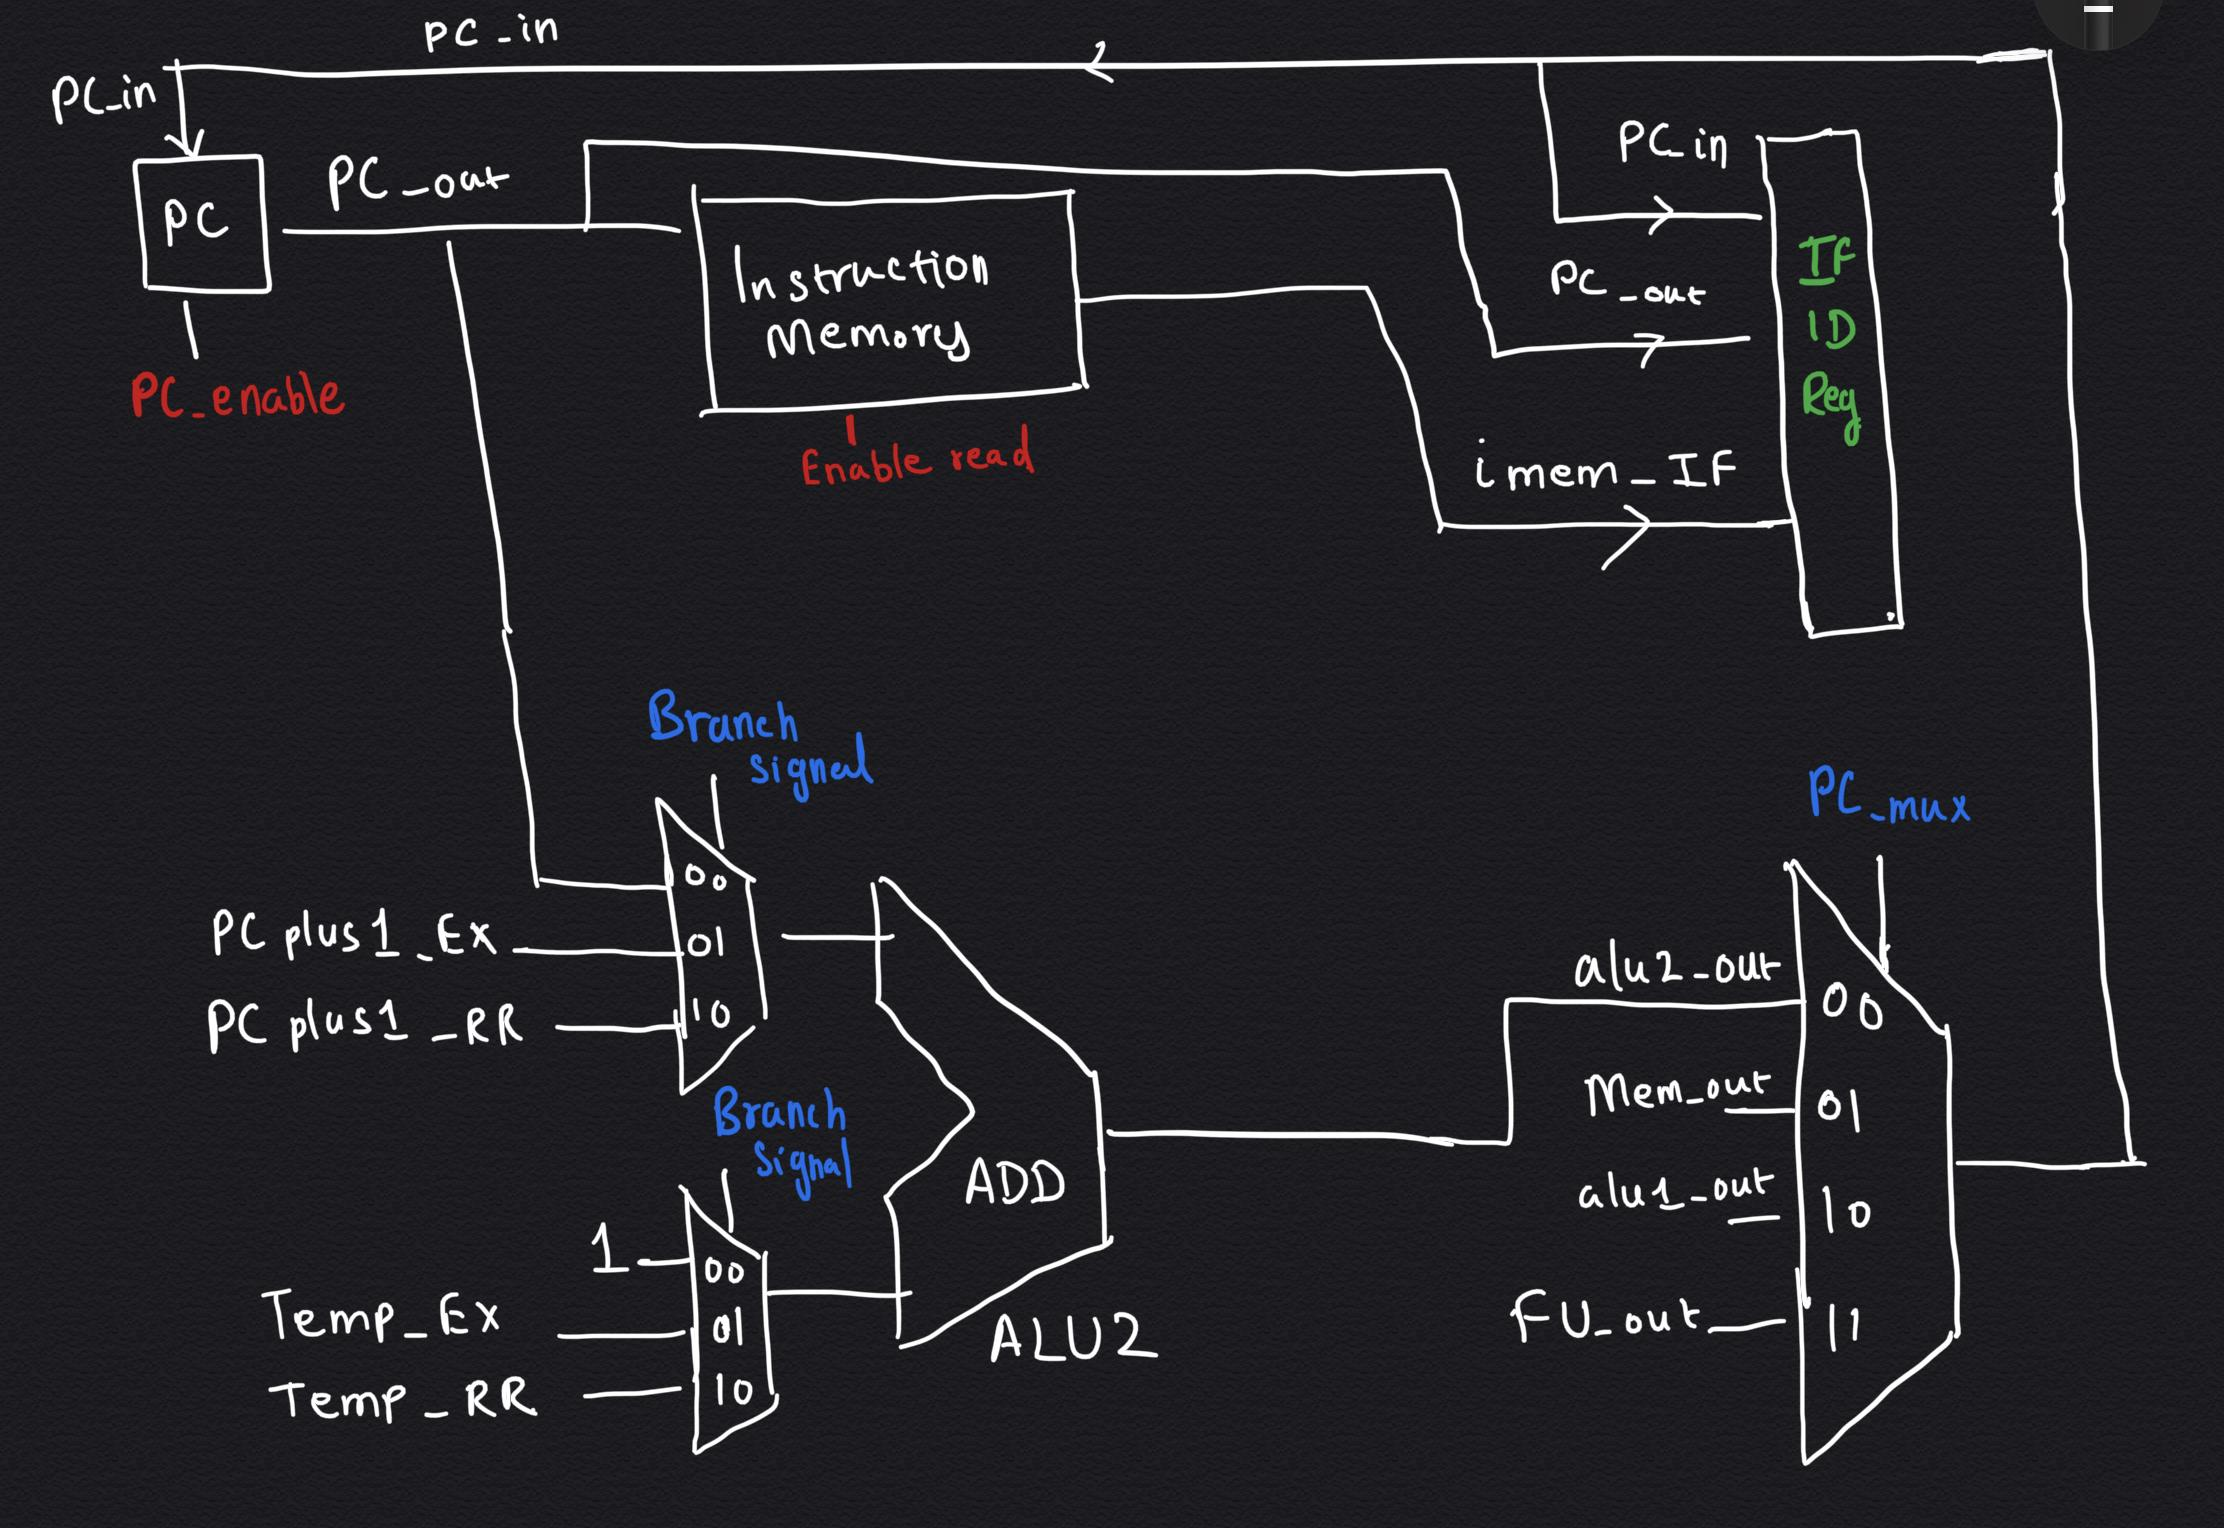 PC_in
PC_in
PC
PC_out
PC_enable
Instruction
Memory
Enable read
PC_in
PC_out
imem_IF
IF
ID
Reg
Branch
signal
00
01
10
PC plus1_Ex
PC plus1_RR
Branch
signal
1
Temp_Ex
Temp_RR
00
01
10
ADD
ALU2
PC_mux
alu2_out
Mem_out
alu1_out
FU_out
00
01
10
11